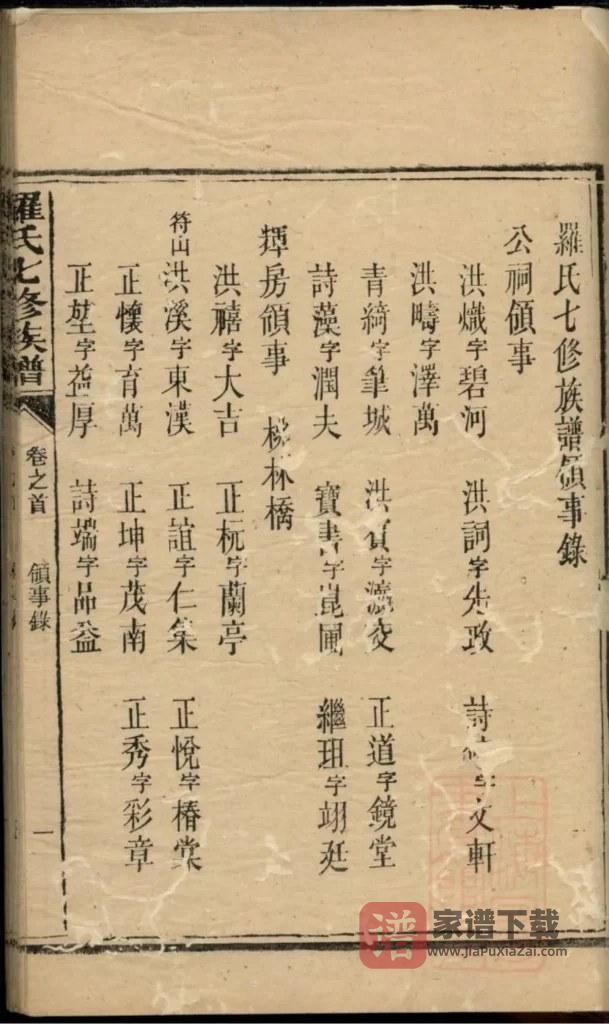 羅氏七修族譜領事錄
公祠領事
洪熾字碧河 洪詞字先政 詩 字文軒
洪疇字澤萬
青綺字筆城 洪 字 交 正道字鏡堂
詩藻字潤夫 寶書字崑圃 繼珇字翊廷
房領事 林橋
洪禧字大吉 正杬字蘭亭
符山 洪溪字東漢 正誼字仁集 正悅字椿棠
正懷字育萬 正坤字茂南 正秀字彩章
正 字益厚 詩端字品益
羅氏七修族譜 卷之首 領事錄 一
譜 家谱下载
www.jiaPuxiaZai.com